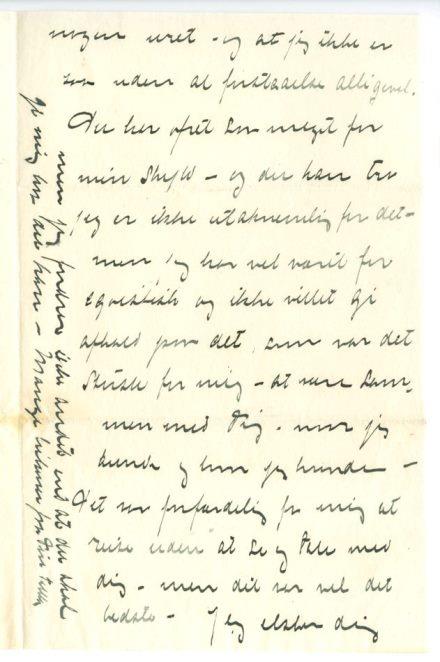 nogen uret – og at jeg ikke er
saa uden al forstaaelse alligevel.
Du har ofret saa meget for
min Skyld – og du kan tro
jeg er ikke utaknemlig for det –
men jeg har vel været for
egoistisk og ikke villet gi
afkald paa det, som var det
største for mig – at være sam-
men med Dig – naar jeg
kunde og hvor jeg kunde –
Det var forfærdelig for mig at
reise uden at se og tale med
dig – men det var vel det
bedste – Jeg elsker dig
men jeg fordrer ikke andet end at du skal
gi mig kjær – Mange hilsener fra Din